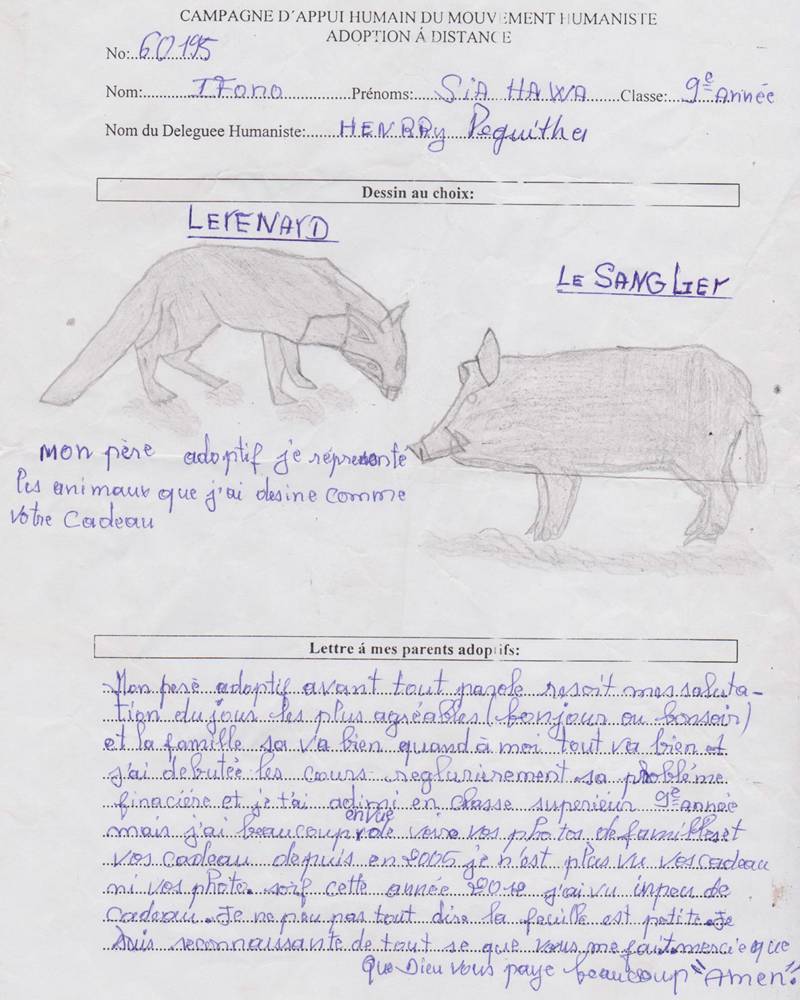 CAMPAGNE D´APPUI HUMAIN DU MOUVEMENT HUMANISTE
ADOPTION Á DISTANCE
No: 60195
Nom: IFono Prénoms: SiA HAWA Classe: 9e Année
Nom du Deleguee Humaniste: HENRRy Peguitha
Dessin au choix:
LeRENARD
LE SANGLIER
Mon père adoptif je répresente
les animaux que j'ai desine comme
votre Cadeau
Lettre á mes parents adoptifs:
Mon perè adoptif avant tout parole resoit mes saluta-
tion du jour les plus agréables (bonjour ou bonsoir)
et la famille sa va bien quand à moi tout va bien et
j'ai debutée les cours reglurièrement sa problème
finacière et je t'ai adimi en classe superieur 9e année
mais j'ai beaucoup envie de voire vos photos de familles et
vos cadeau depuis en 2005 je n'est plus vu vos cadeau
ni vos photo. sof cette année 2010 j'ai vu inpeu de
Cadeau. Je ne peu pas tout dire la feuille est petite. Je
suis reconnaissante de tout se que vous me fait mercie que
que Dieu vous paye beaucoup "Amen"!